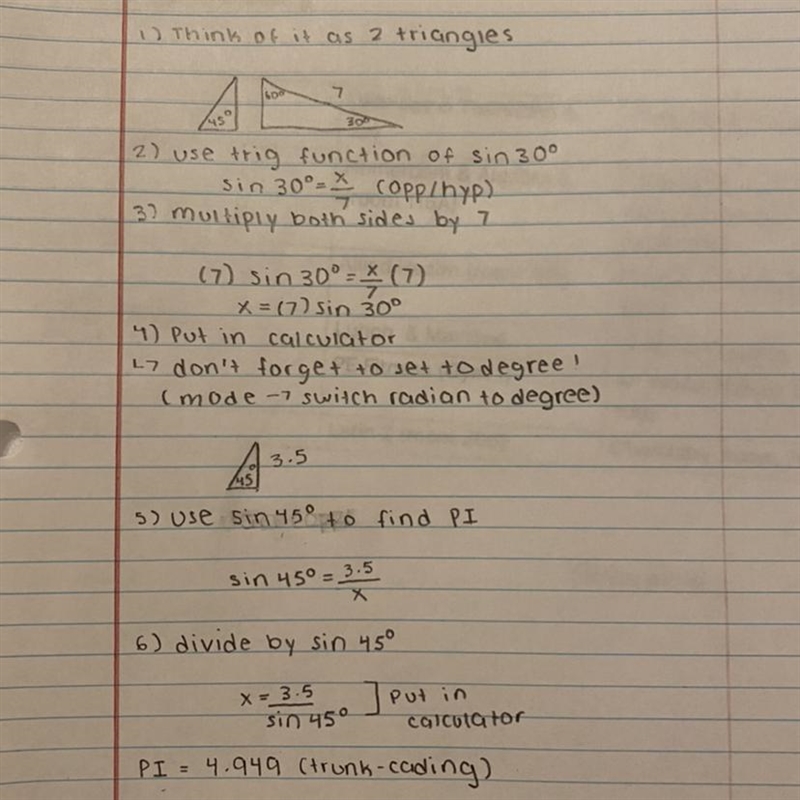 1) Think of it as 2 triangles
45° 60° 7 30°
2) use trig function of sin 30°
sin 30° = x/7 (opp/hyp)
3) multiply both sides by 7
(7) sin 30° = x/7 (7)
x = (7) sin 30°
4) Put in calculator
↳ don't forget to set to degree!
(mode → switch radian to degree)
45° 3.5
5) use sin 45° to find PI
sin 45° = 3.5/x
6) divide by sin 45°
x = 3.5/sin 45° ] Put in calculator
PI = 4.949 (trunk-cading)